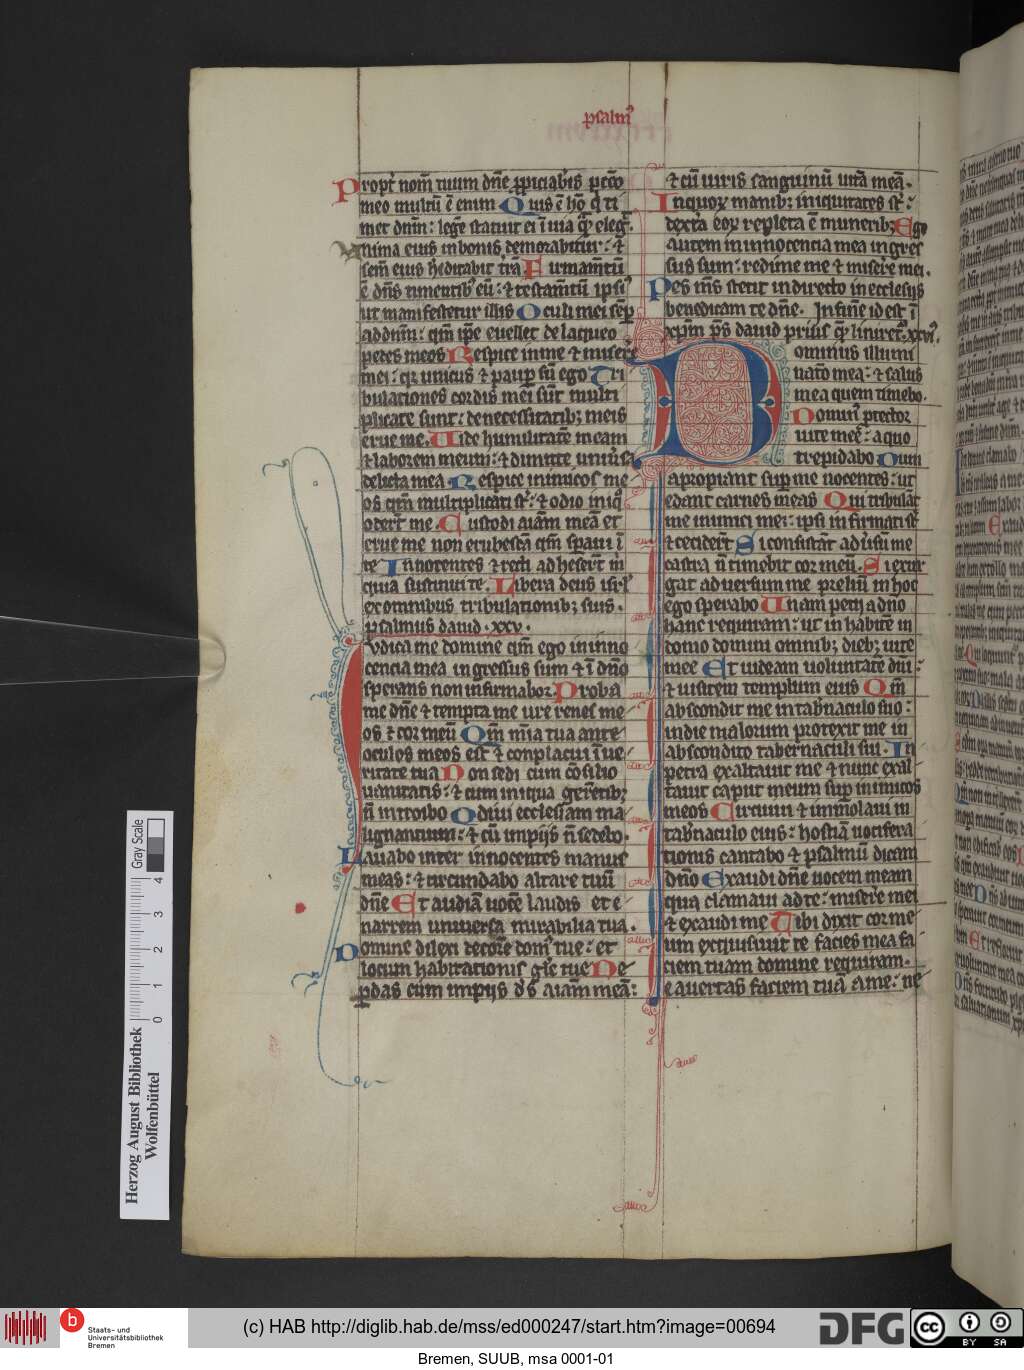 psalmꝰ
Propt̃ nom̃ tuum dñe ꝓpiciab̃is pctõ
meo multũ ẽ enim Quis ẽ hõ q̇ ti
met dñm: legẽ statuit ei ĩ uia q̃ꝫ eleg̃.
Anima eius in bonis demorabitur: ⁊
sem̃ eius hẽditabit tr̃ã Firmam̃tũ
ẽ dñs timentib eũ: ⁊ testam̃tũ ipsi
ut manifestetur illis Oculi mei sẽp
ad dñm: qm̃ ip̃e euellet de laqueo
pedes meos Respice in me ⁊ miserẽ
mei: qꝛ unicus ⁊ paup sũ ego Tri
bulationes cordis mei sũt multi
plicate sunt: de necessitatibꝫ meis
erue me. Uide humilitatẽ meam
⁊ laborem meum: ⁊ dimitte uniũsa
delicta mea Respice inimicos me
os qm̃ multiplicati st̃: ⁊ odio iniq̇
odert̃ me. Custodi aĩam meã et
erue me non erubescã qm̃ sꝑaui ĩ
te Innocentes ⁊ recti adheser̃t m̃
quia sustinui te. Libera deus isr̃l
ex omnibus tribulationibꝫ suis.
psalmus dauid .xxv.
Iudica me domine qm̃ ego in inno
cencia mea ingressus sum ⁊ ĩ dñõ
sperans non infirmabor. Proba
me dñe ⁊ tempta me ure renes me
os ⁊ cor meũ Qm̃ mĩa tua ante
oculos meos est ⁊ conplacui ĩ ue
ritate tua Non sedi cum cõsilio
uanitatis: ⁊ cum iniqua ger̃etibꝫ
ñ introibo Odiui ecclesiam ma
lignantium: ⁊ cũ impijs ñ sedebo.
Lauabo inter innocentes manus
meas: ⁊ circumdabo altare tuũ
dñe Et audiã uocẽ laudis et e
narrem uniuersa mirabilia tua.
Domine dilexi decorẽ dom̃ tue: et
locum habitationis gl̃e tue Ne
ꝑdas cum impijs d̃s aĩam meã:
⁊ cũ uiris sanguinũ uitã meã.
In quoꝝ manibꝫ iniquitates st̃:
dext̃a eoꝝ repleta ẽ muneribꝫ Ego
autem in innocencia mea ingres
sus sum: redime me ⁊ miserẽ mei.
Pes mẽs stetit in directo in ecclesijs
benedicam te dñe. In finẽ id est ĩ
xp̃m p̃s dauid priusꝙ̃ liniret̃ .xxvi.
Dominus illumi
natõ mea: ⁊ salus
mea quem timebo.
Dominꝰ ꝓtector
uite meẽ: a quo
trepidabo Dum
apropiant suꝑ me nocentes: ut
edant carnes meas Qui tribulãt
me inimici mei: ipsi infirmati st̃
⁊ cecider̃t Si consistãt adũsũ me
castra ñ timebit cor meũ. Si exur
gat aduersum me p̃eliũ in hoc
ego sperabo Unam petij a dñõ
hanc requiram: ut inhabitẽ in
domo domini omnibꝫ diebꝫ uite
mee Et uideam uoluntatẽ dñi:
⁊ uisitem templum eius Qm̃
abscondit me in tab̃naculo suo:
in die malorum protexit me in
abscondito tabernaculi sui. In
petra exaltauit me ⁊ nunc exal
tauit caput meum suꝑ inimicos
meos Circuiui ⁊ immolaui in
tab̃naculo eius: hostiã uocifera
tionis cantabo ⁊ psalmũ dicam
dñõ Exaudi dñe uocem meam
qua clamaui ad te: miserẽ mei
⁊ exaudi me Tibi dixit cor me
um exquisiuit te facies mea fa
ciem tuam domine requiram.
e auertas faciem tuã a me: ne
Herzog August Bibliothek
Wolfenbüttel
Gray Scale
0 1 2 3 4
b Staats- und
Universitätsbibliothek
Bremen
(c) HAB http://diglib.hab.de/mss/ed000247/start.htm?image=00694
DFG
cc BY SA
Bremen, SUUB, msa 0001-01